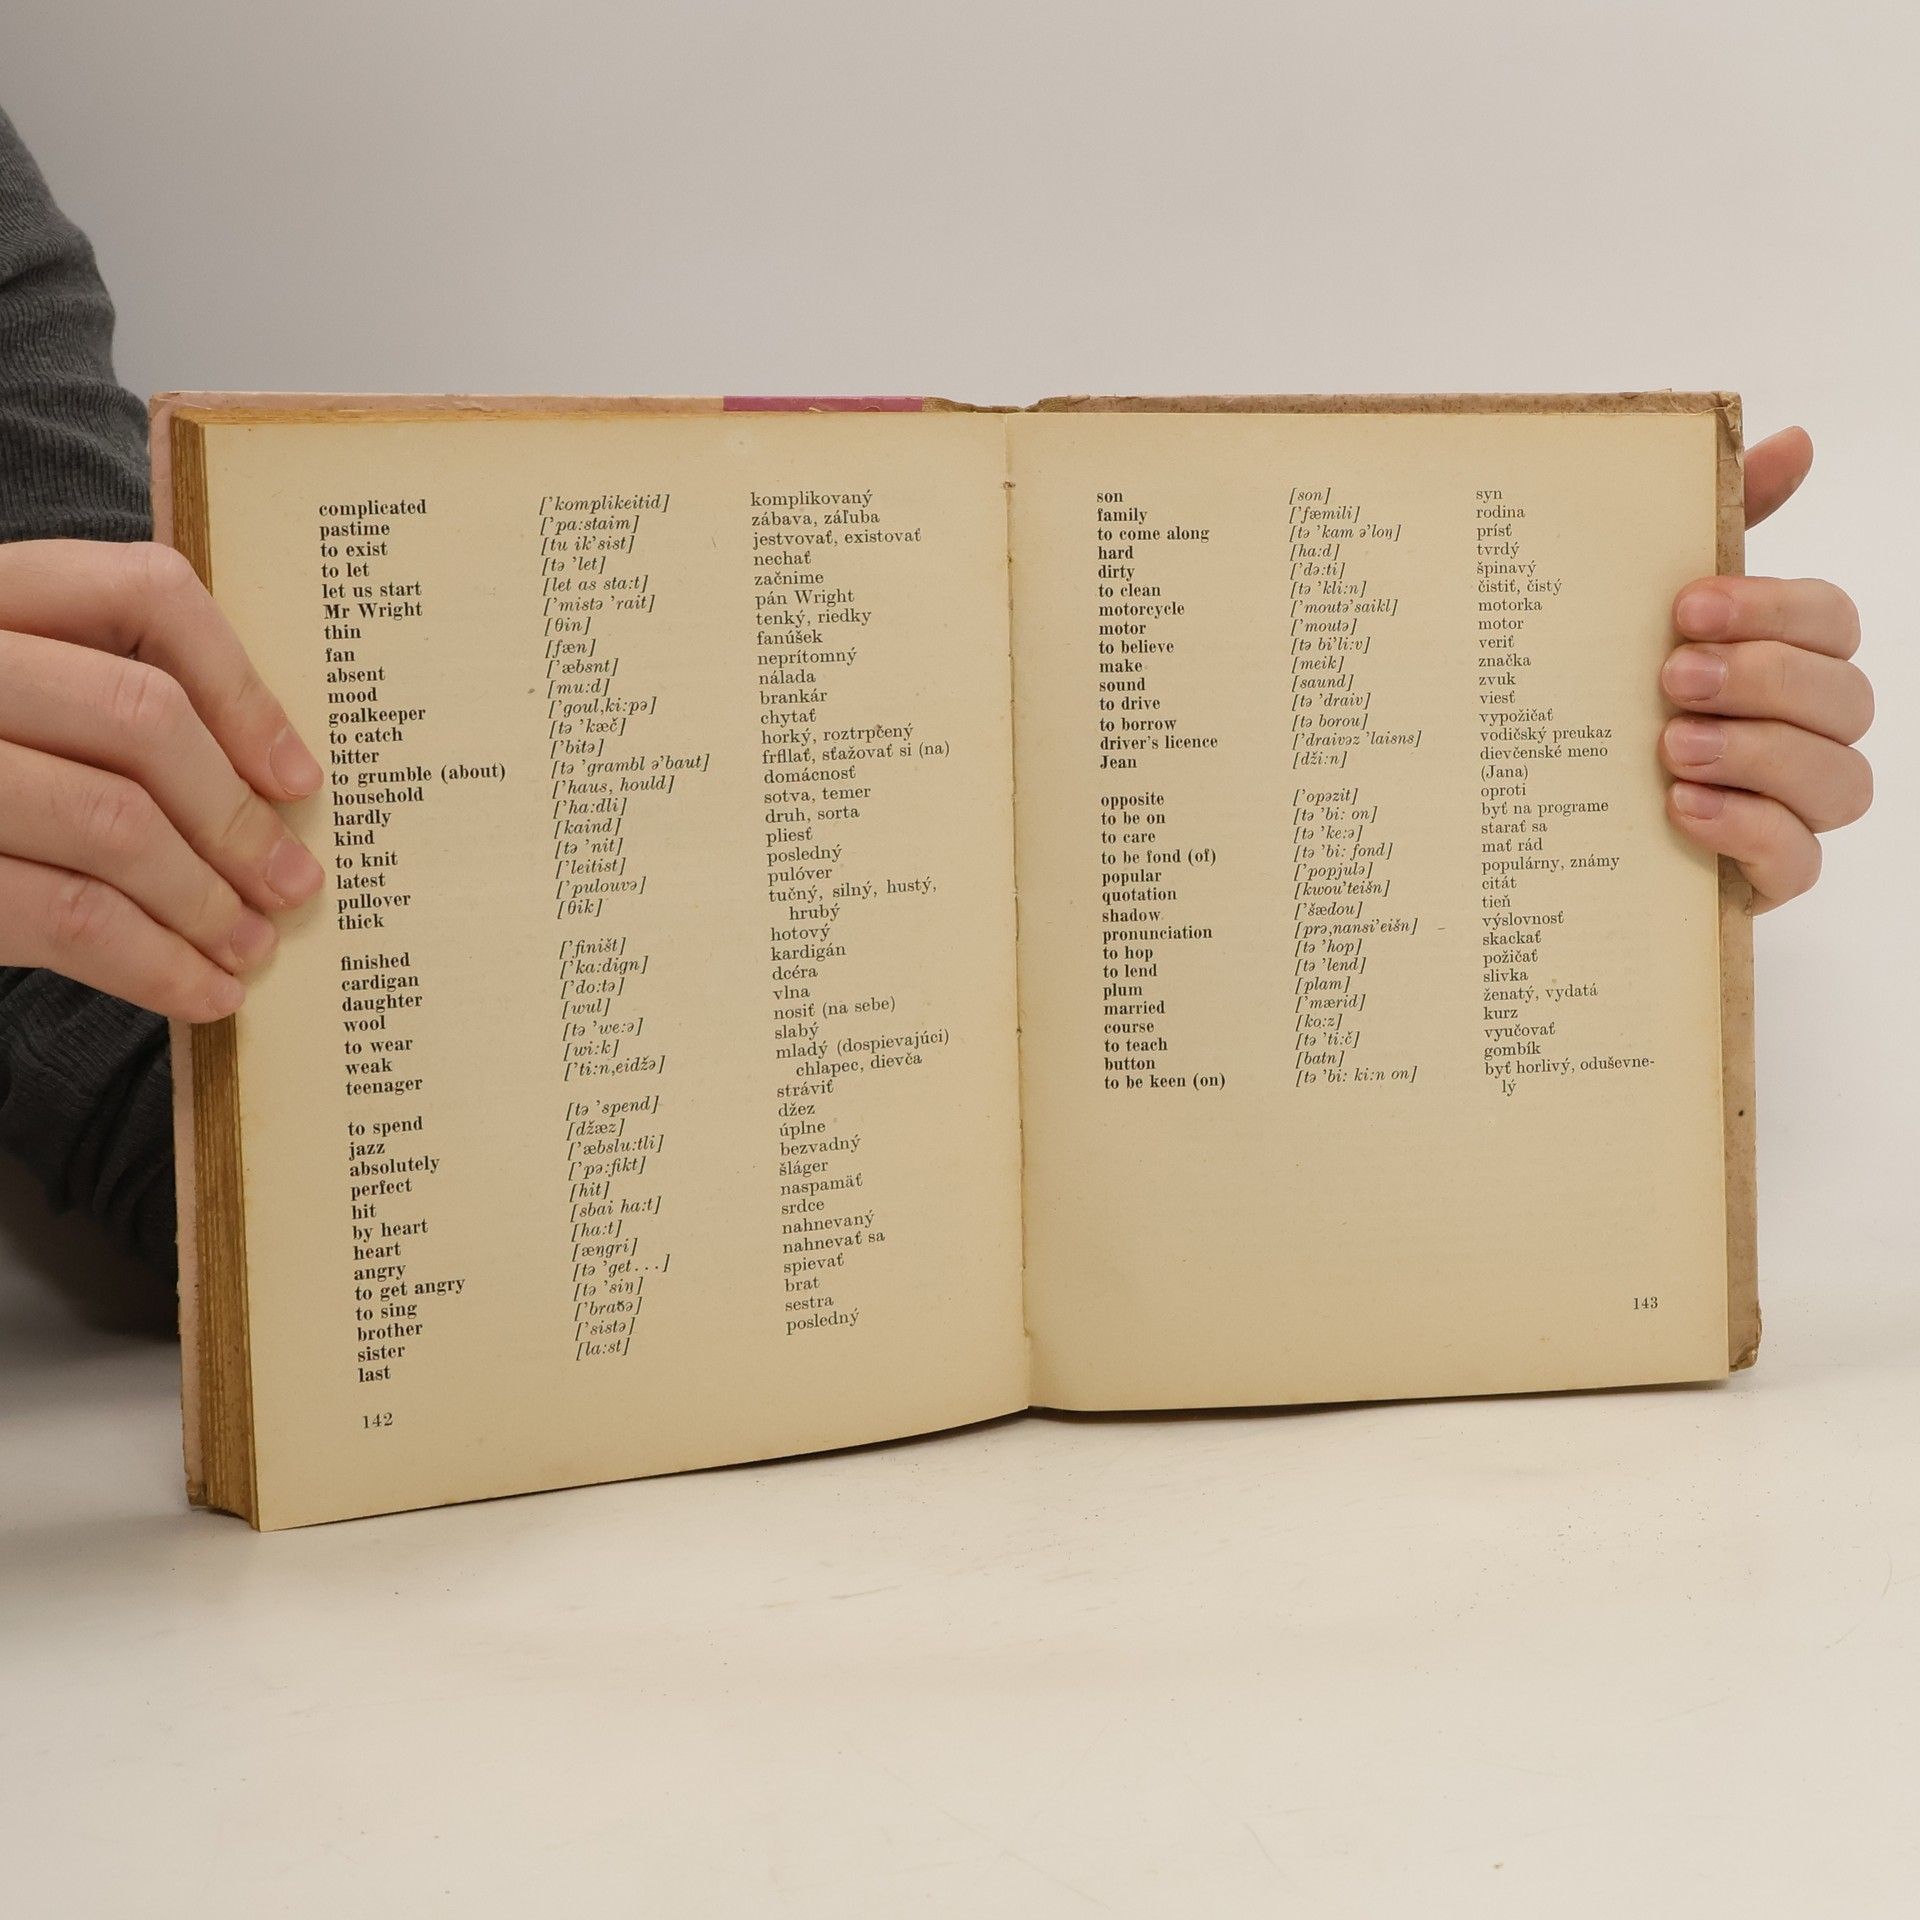 complicated ['komplikeitid] komplikovaný
pastime ['pa:staim] zábava, záľuba
to exist [tu ik'sist] jestvovať, existovať
to let [tə 'let] nechať
let us start [let as sta:t] začnime
Mr Wright ['mistə 'rait] pán Wright
thin [θin] tenký, riedky
fan [fæn] fanúšek
absent ['æbsnt] neprítomný
mood [mu:d] nálada
goalkeeper ['goul,ki:pə] brankár
to catch [tə 'kæč] chytať
bitter ['bitə] horký, roztrpčený
to grumble (about) [tə 'grambl ə'baut] frfllať, sťažovať si (na)
household ['haus, hould] domácnosť
hardly ['ha:dli] sotva, temer
kind [kaind] druh, sorta
to knit [tə 'nit] pliesť
latest ['leitist] posledný
pullover ['pulouvə] pulóver
thick [θik] tučný, silný, hustý,
hrubý
finished ['finišt] hotový
cardigan ['ka:dign] kardigán
daughter ['do:tə] dcéra
wool [wul] vlna
to wear [tə 'we:ə] nosiť (na sebe)
weak [wi:k] slabý
teenager ['ti:n,eidžə] mladý (dospievajúci)
chlapec, dievča
to spend [tə 'spend] stráviť
jazz [džæz] džez
absolutely ['æbslu:tli] úplne
perfect ['pə:fikt] bezvadný
hit [hit] šláger
by heart [sbai ha:t] naspamäť
heart [ha:t] srdce
angry [æŋgri] nahnevaný
to get angry [tə 'get...] nahnevať sa
to sing [tə 'siŋ] spievať
brother ['braðə] brat
sister ['sistə] sestra
last [la:st] posledný
142
son [son] syn
family ['fæmili] rodina
to come along [tə 'kam ə'loŋ] prísť
hard [ha:d] tvrdý
dirty ['də:ti] špinavý
to clean [tə 'kli:n] čistiť, čistý
motorcycle ['moutə'saikl] motorka
motor ['moutə] motor
to believe [tə bi'li:v] veriť
make [meik] značka
sound [saund] zvuk
to drive [tə 'draiv] viesť
to borrow [tə borou] vypožičať
driver's licence ['draivəz 'laisns] vodičský preukaz
Jean [dži:n] dievčenské meno
(Jana)
opposite ['opəzit] oproti
to be on [tə 'bi: on] byť na programe
to care [tə 'ke:ə] starať sa
to be fond (of) [tə 'bi: fond] mať rád
popular ['popjulə] populárny, známy
quotation [kwou'teišn] citát
shadow ['šædou] tieň
pronunciation [prə,nansi'eišn] výslovnosť
to hop [tə 'hop] skackať
to lend [tə 'lend] požičať
plum [plam] slivka
married ['mærid] ženatý, vydatá
course [ko:z] kurz
to teach [tə 'ti:č] vyučovať
button [batn] gombík
to be keen (on) [tə 'bi: ki:n on] byť horlivý, oduševne-
lý
143